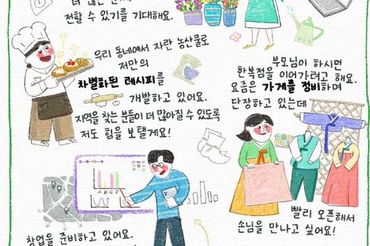 전할 수 있기를 기대해요.
우리 동네에서 자란 농산물로
저만의
차별화된 레시피를
개발하고 있어요.
지역을 찾는 분들이 더 많아질 수 있도록
저도 힘을 보탤게요!
부모님이 하시던
한복점을 이어가려고 해요.
요즘은 가게를 정비하며
단장하고 있는데
빨리 오픈해서
손님을 만나고 싶어요!
A B C D
창업을 준비하고 있어요.